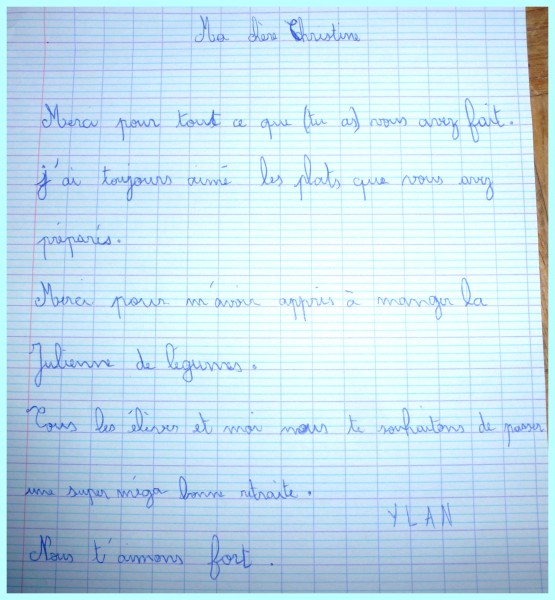 Ma chère Christine
Merci pour tout ce que (tu as) vous avez fait.
j'ai toujours aimé les plats que vous avez
préparés.
Merci pour m'avoir appris à manger la
Julienne de légumes.
Tous les élèves et moi nous te souhaitons de passer
une super méga bonne retraite.
YLAN
Nous t'aimons fort.